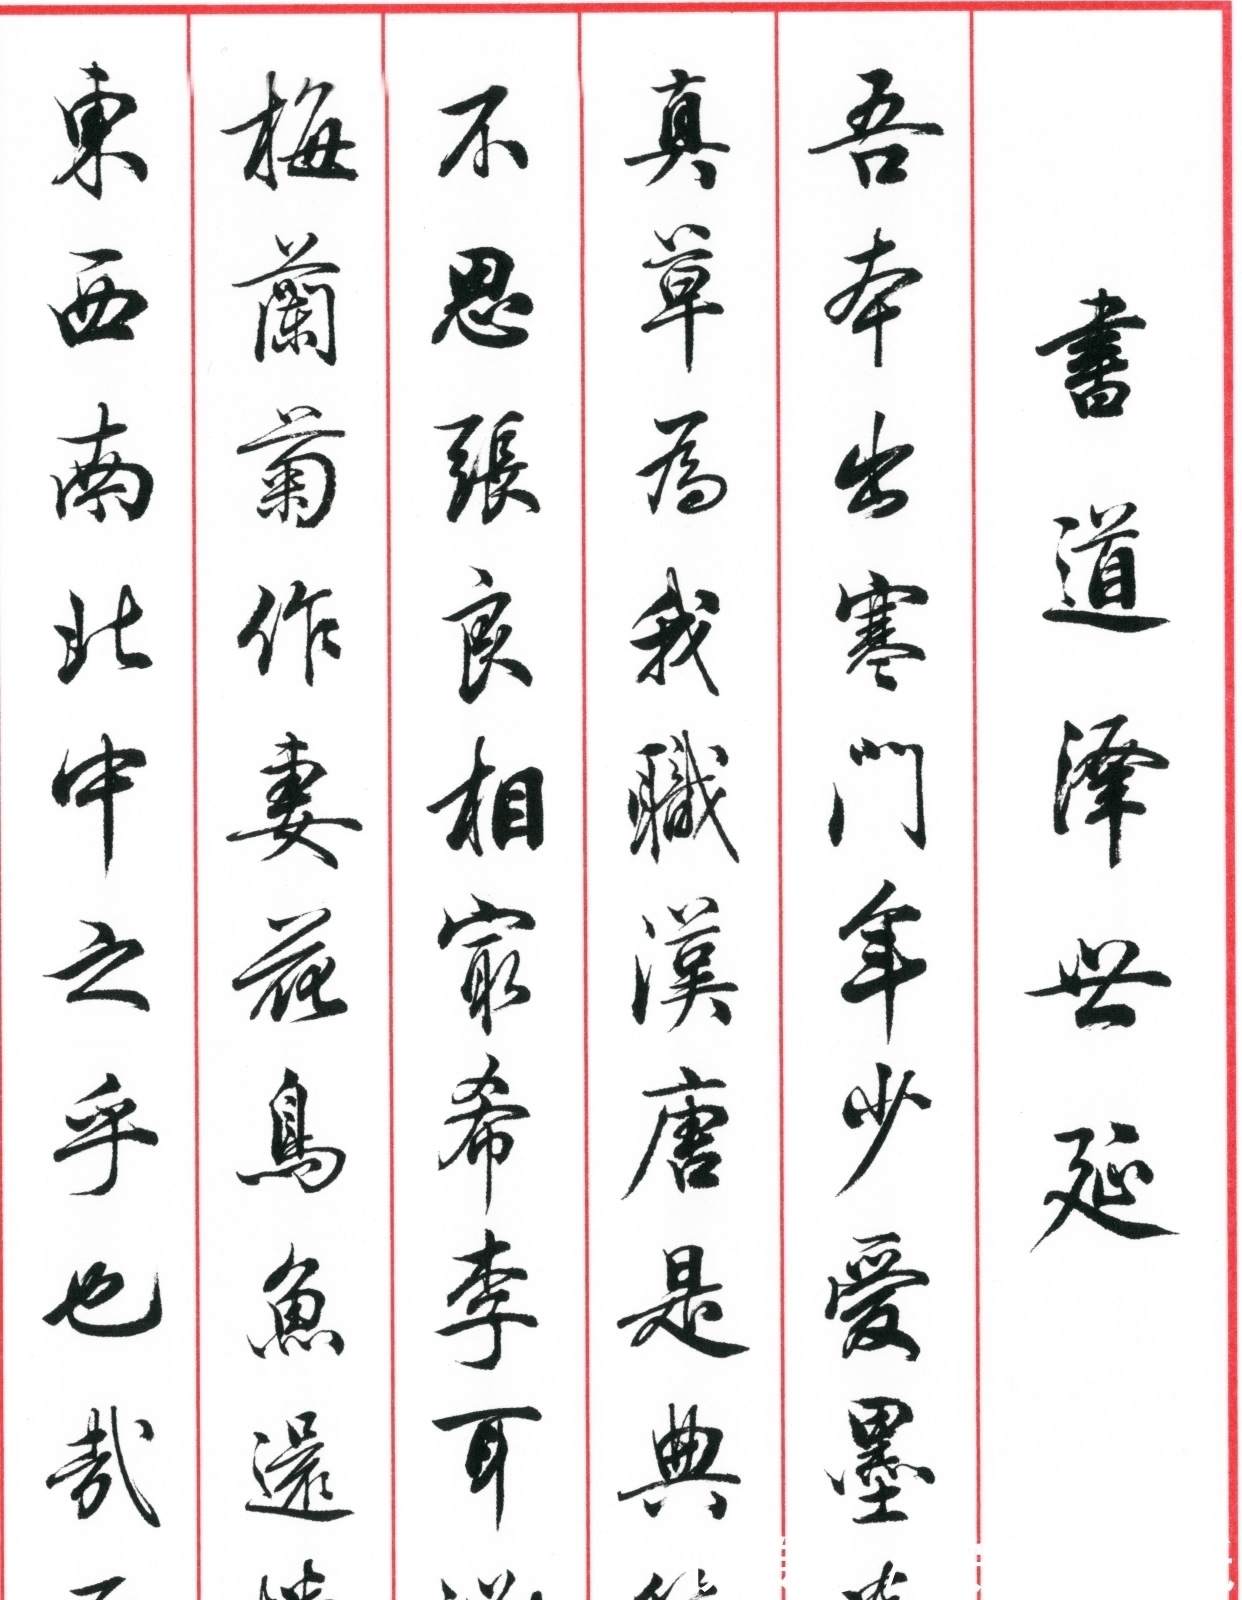 書道澤世延
吾本出寒門年少愛墨
真草為我職漢唐是典
不思張良相窮希李耳
梅蘭菊作妻花鳥魚還
東西南北中之乎也哉